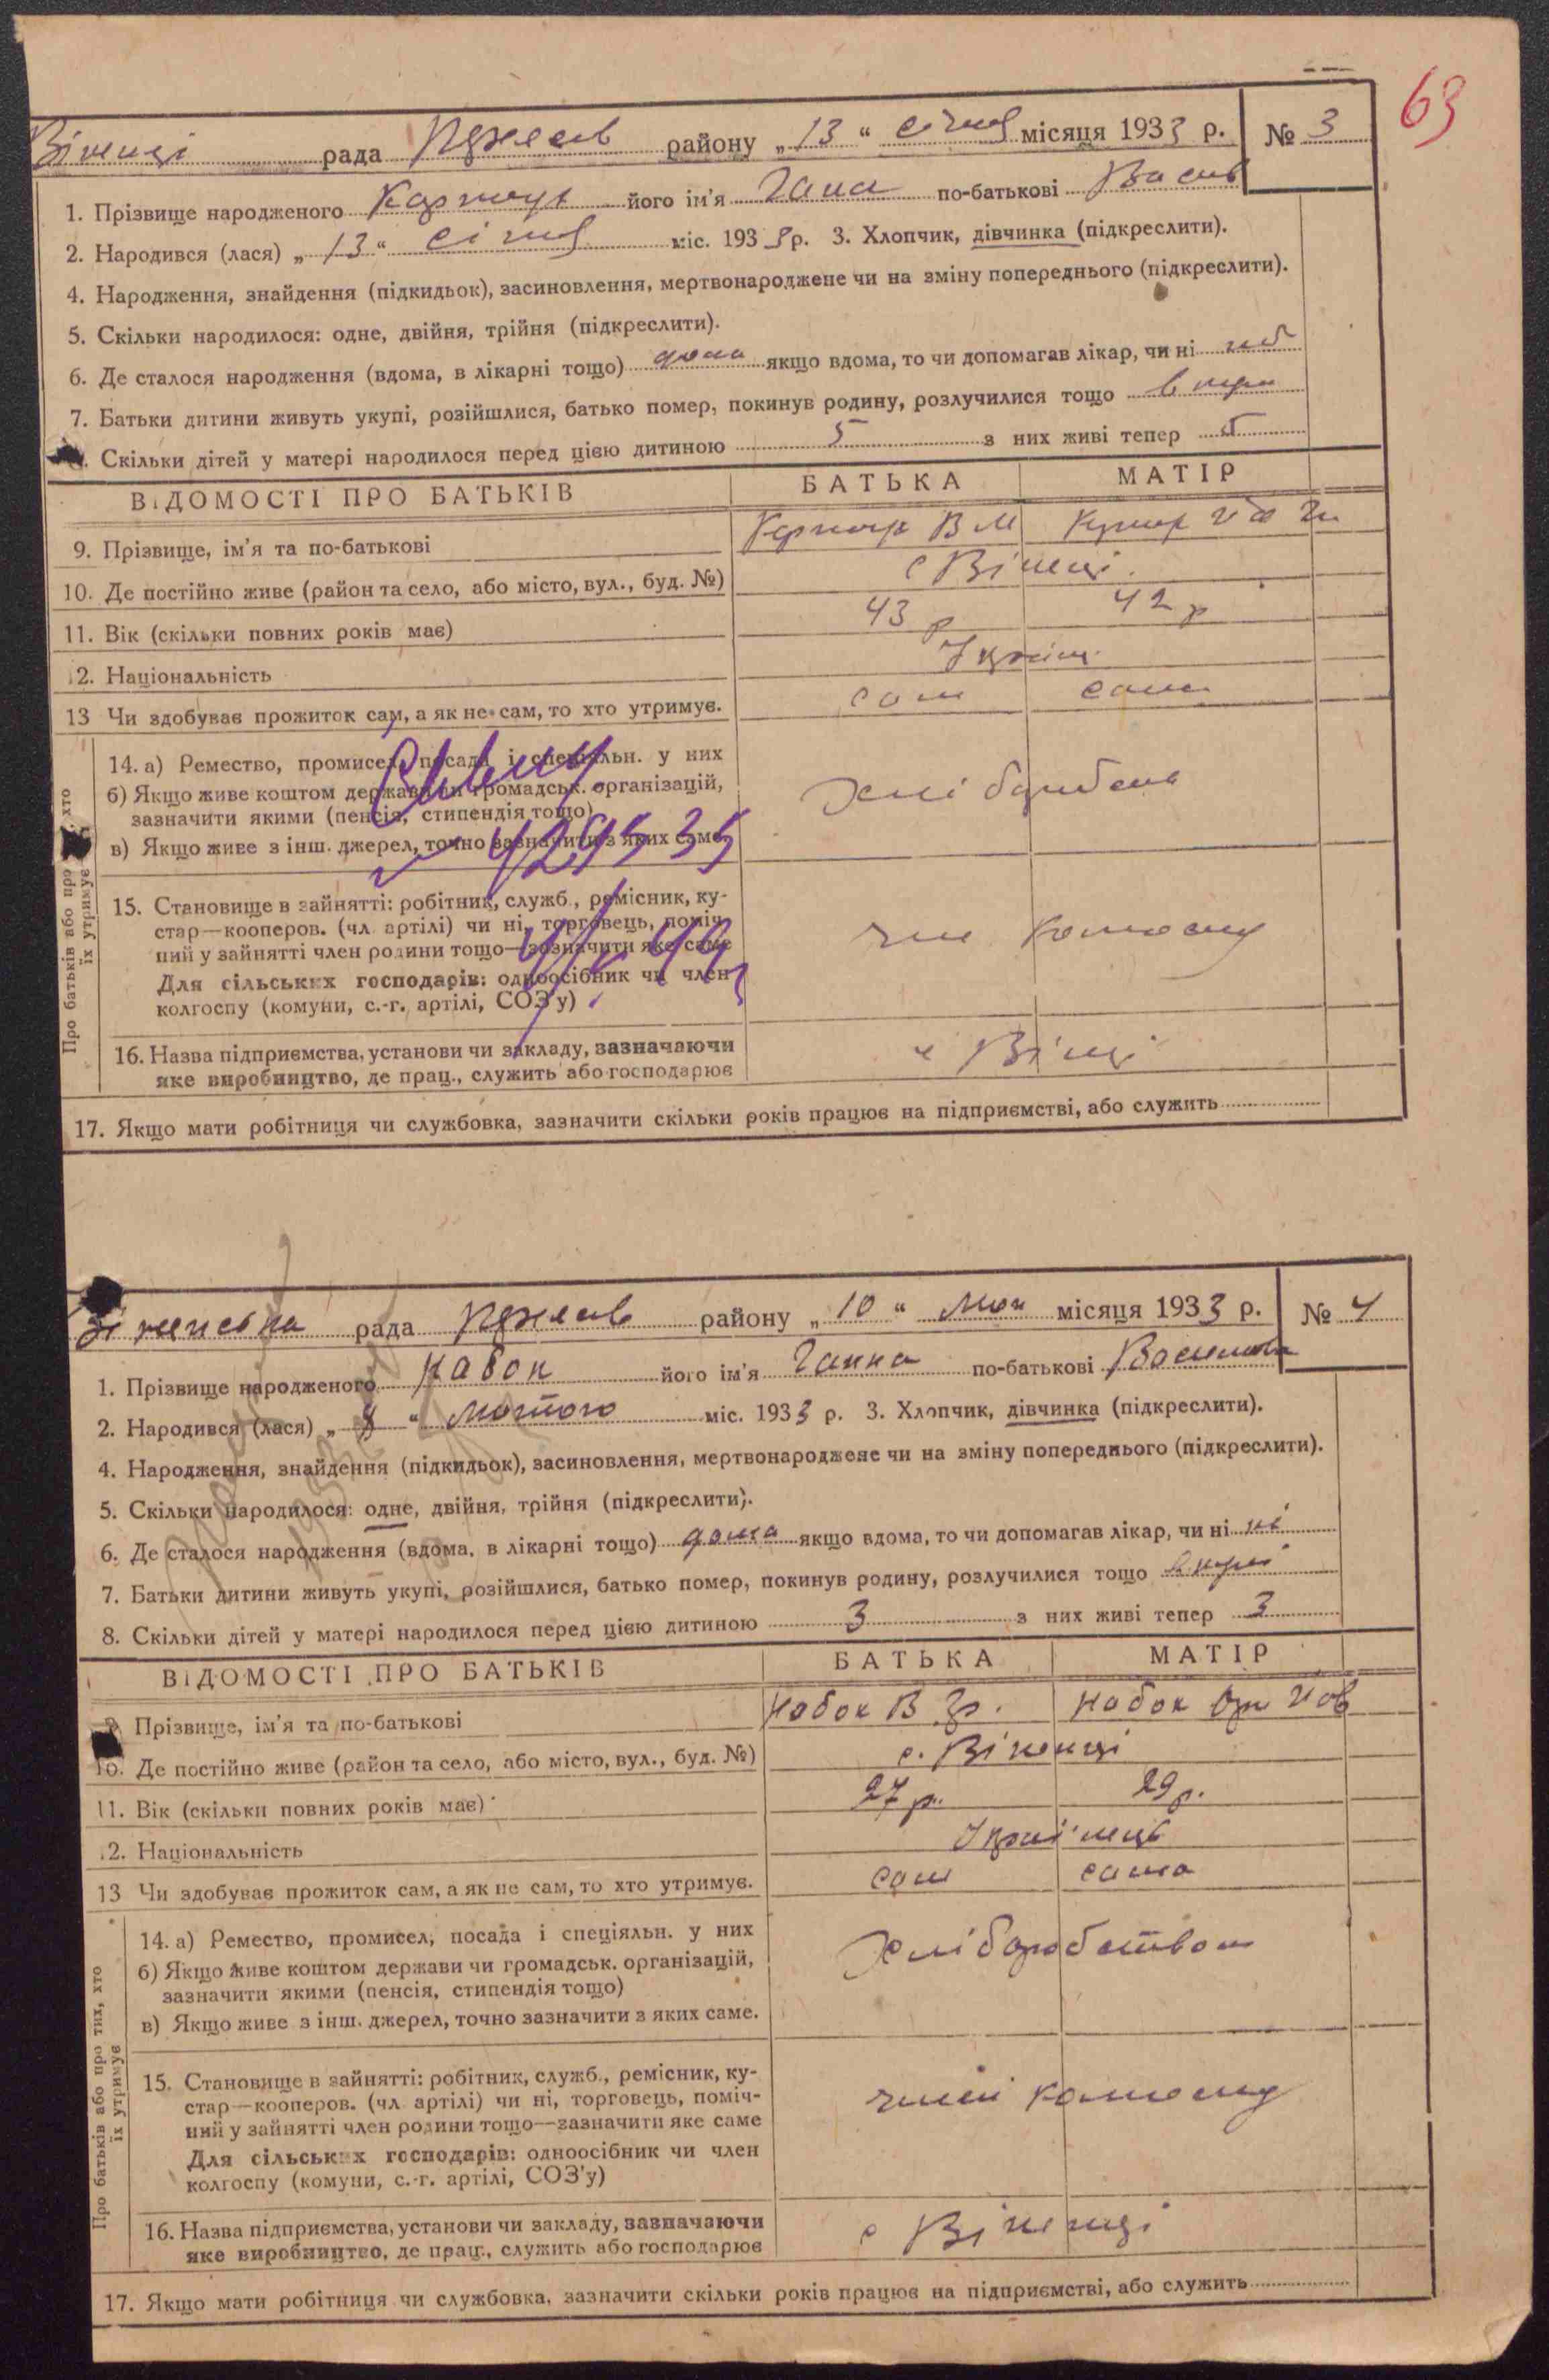 63
Віненці рада району „13“ січня місяця 1933 р. № 3
1. Прізвище народженого його ім'я Гана по-батькові Васил
2. Народився (лася) „13“ січня міс. 1933 р. 3. Хлопчик, дівчинка (підкреслити).
4. Народження, знайдення (підкидьок), засиновлення, мертвонароджене чи на зміну попереднього (підкреслити).
5. Скільки народилося: одне, двійня, трійня (підкреслити).
6. Де сталося народження (вдома, в лікарні тощо) дома якщо вдома, то чи допомагав лікар, чи ні
7. Батьки дитини живуть укупі, розійшлися, батько помер, покинув родину, розлучилися тощо вкупі
Скільки дітей у матері народилося перед цією дитиною 5 з них живі тепер 5
ВІДОМОСТІ ПРО БАТЬКІВ БАТЬКА МАТІР
9. Прізвище, ім'я та по-батькові В М
10. Де постійно живе (район та село, або місто, вул., буд. №) с Віненці.
11. Вік (скільки повних років має) 43 р 42 р
12. Національність Україн.
13 Чи здобуває прожиток сам, а як не сам, то хто утримує. сам сама
Про батьків або про хто їх утримує
14. а) Ремество, промисел, посада і спеціяльн. у них
б) Якщо живе коштом держави чи громадськ. організацій,
зазначити якими (пенсія, стипендія тощо)
в) Якщо живе з інш. джерел, точно зазначити з яких саме.
15. Становище в зайнятті: робітник, служб., ремісник, ку-
стар—кооперов. (чл артілі) чи ні, торговець, поміч-
ний у зайнятті член родини тощо—зазначити яке саме
Для сільських господарів: одноосібник чи член
колгоспу (комуни, с.-г. артілі, СОЗ'у)
член колгоспу
16. Назва підприємства, установи чи закладу, зазначаючи
яке виробництво, де прац., служить або господарює
17. Якщо мати робітниця чи службовка, зазначити скільки років працює на підприємстві, або служить
Віненська рада району „10“ лют місяця 1933 р. № 4
1. Прізвище народженого Набок його ім'я Ганна по-батькові Василівна
2. Народився (лася) „8“ лютого міс. 1933 р. 3. Хлопчик, дівчинка (підкреслити).
4. Народження, знайдення (підкидьок), засиновлення, мертвонароджене чи на зміну попереднього (підкреслити).
5. Скільки народилося: одне, двійня, трійня (підкреслити).
6. Де сталося народження (вдома, в лікарні тощо) дома якщо вдома, то чи допомагав лікар, чи ні ні
7. Батьки дитини живуть укупі, розійшлися, батько помер, покинув родину, розлучилися тощо вкупі
8. Скільки дітей у матері народилося перед цією дитиною 3 з них живі тепер 3
ВІДОМОСТІ ПРО БАТЬКІВ БАТЬКА МАТІР
Прізвище, ім'я та по-батькові Набок В Гр. Набок
10. Де постійно живе (район та село, або місто, вул., буд. №) с. Віненці
11. Вік (скільки повних років має) 27 р. 29 р.
12. Національність Українець
13 Чи здобуває прожиток сам, а як не сам, то хто утримує. сам сама
Про батьків або про тих, хто їх утримує
14. а) Ремество, промисел, посада і спеціяльн. у них
б) Якщо живе коштом держави чи громадськ. організацій,
зазначити якими (пенсія, стипендія тощо)
в) Якщо живе з інш. джерел, точно зазначити з яких саме.
Хліборобством
15. Становище в зайнятті: робітник, служб., ремісник, ку-
стар—кооперов. (чл артілі) чи ні, торговець, поміч-
ний у зайнятті член родини тощо—зазначити яке саме
Для сільських господарів: одноосібник чи член
колгоспу (комуни, с.-г. артілі, СОЗ'у)
член колгоспу
16. Назва підприємства, установи чи закладу, зазначаючи
яке виробництво, де прац., служить або господарює
с Віненці
17. Якщо мати робітниця чи службовка, зазначити скільки років працює на підприємстві, або служить